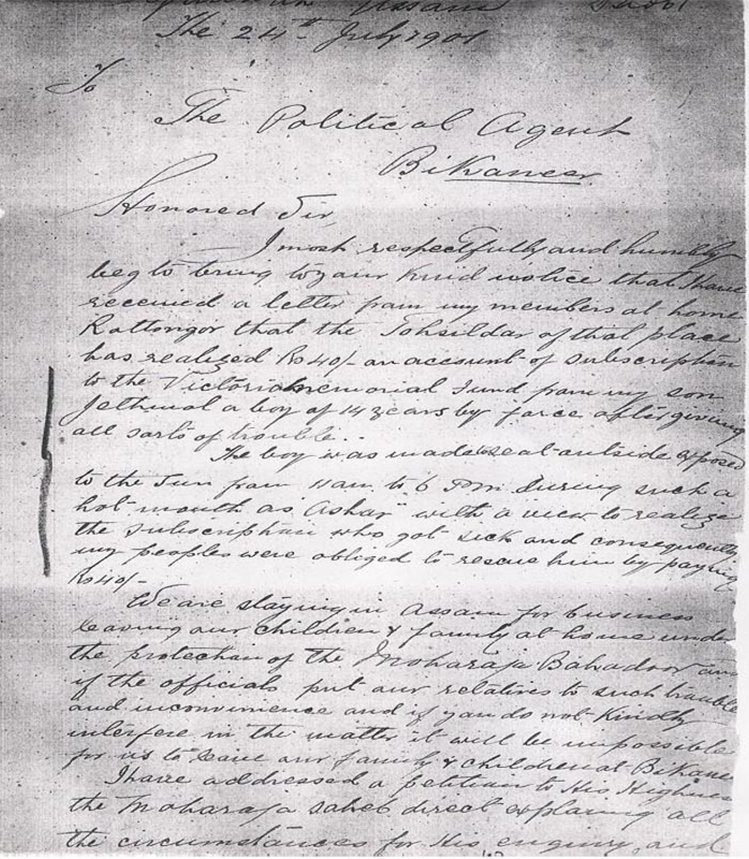 Assam
The 24th July 1901
To
The Political Agent
Bikaneer
Honored Sir,
I most respectfully and humbly
beg to bring to your kind notice that I have
received a letter from my members at home
Rattongor that the Tohsildar of that place
has realized Rs 40/- on account of subscription
to the Victoria memorial Fund from my son
Jethmal a boy of 14 years by force after giving
all sorts of trouble.
The boy was made to seat outside exposed
to the Sun from 11 am to 6 Pm during such a
hot month as "Ashar" with a view to realize
the subscription who got sick and consequently
my peoples were obliged to rescue him by paying
Rs 40/-
We are staying in Assam for business
leaving our children & family at home under
the protection of the Moharaja Bahadoor and
if the officials put our relatives to such trouble
and inconvenience and if you do not Kindly
interfere in the matter it will be impossible
for us to leave our family & children at Bikaneer
I have addressed a petition to His Highness
the Moharaja saheb direct explaing all
the circumstances for His enquiry and